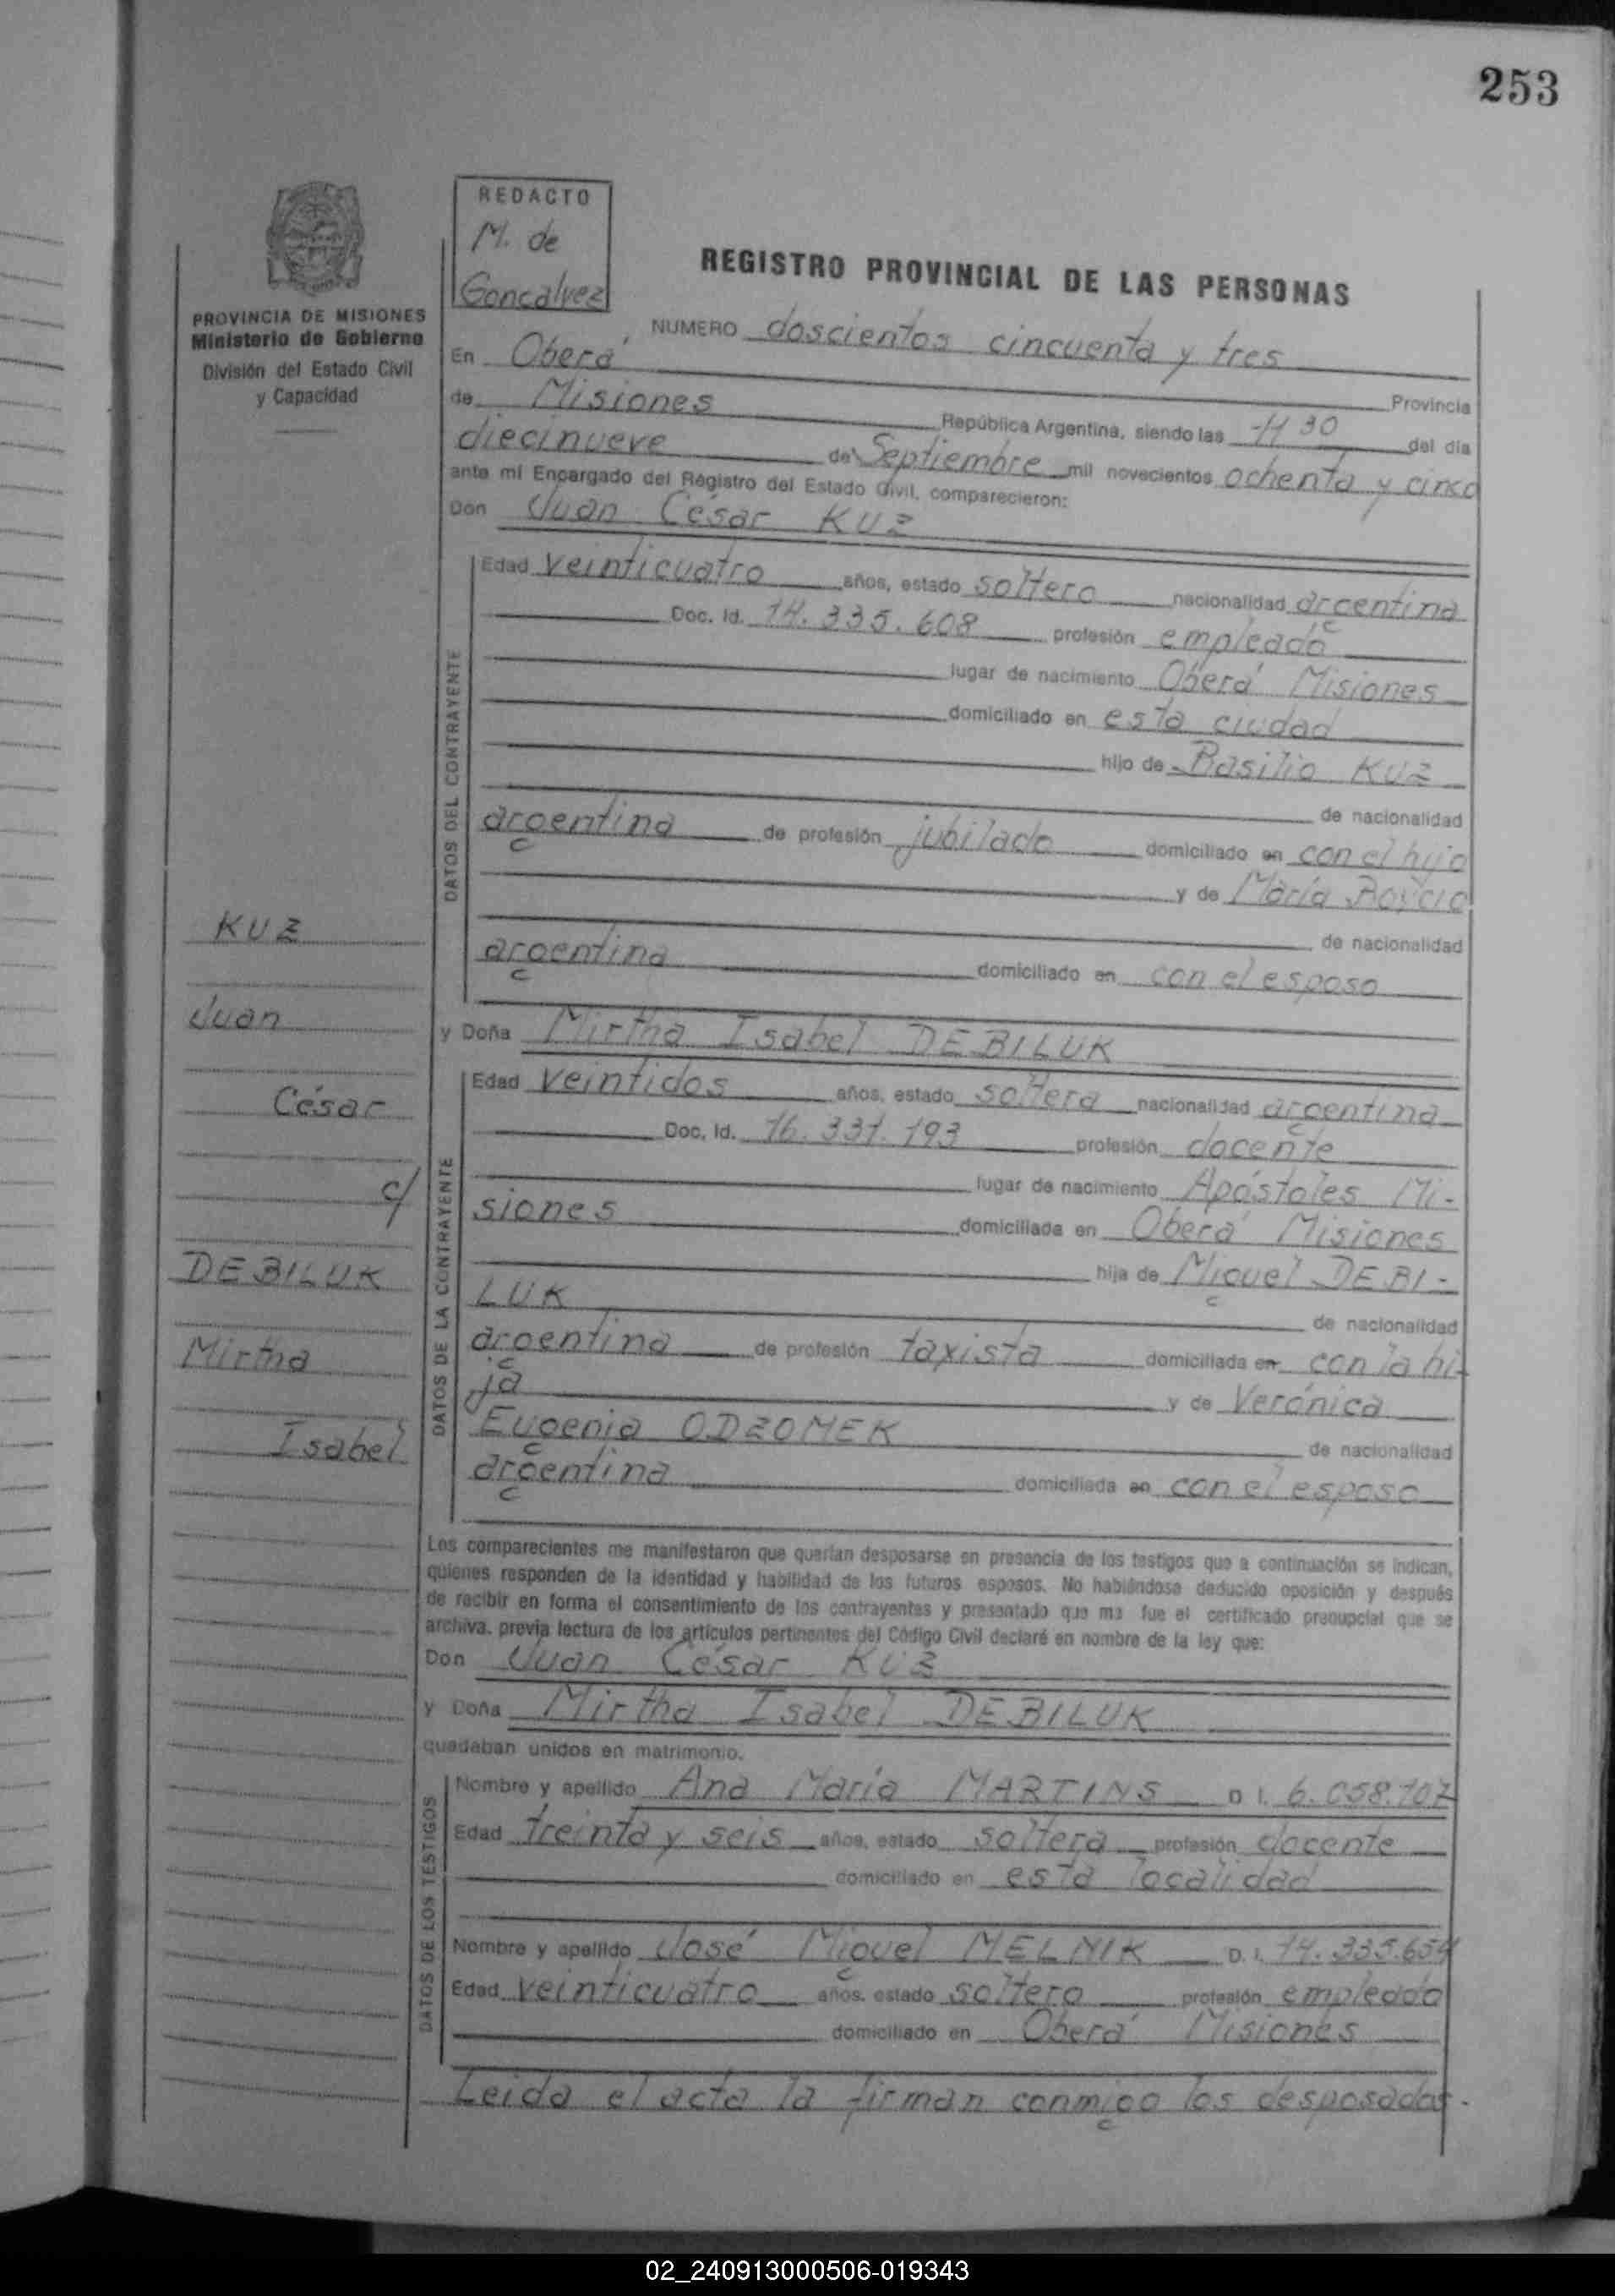 253
REDACTO
M. de
Goncalvez
REGISTRO PROVINCIAL DE LAS PERSONAS
PROVINCIA DE MISIONES
Ministerio de Gobierno
División del Estado Civil
y Capacidad
NUMERO doscientos cincuenta y tres
En Oberá
Provincia
de Misiones República Argentina, siendo las 11 30 del día
diecinueve de Septiembre mil novecientos ochenta y cinco
ante mí Encargado del Registro del Estado Civil, comparecieron:
Don Juan César KUZ
DATOS DEL CONTRAYENTE
Edad veinticuatro años, estado soltero nacionalidad argentina
Doc. Id. 14.335.608 profesión empleado
lugar de nacimiento Oberá Misiones
domiciliado en esta ciudad
hijo de Basilio KUZ
de nacionalidad
argentina de profesión jubilado domiciliado en con el hijo
y de María
de nacionalidad
argentina domiciliado en con el esposo
y Doña Mirtha Isabel DEBILUK
DATOS DE LA CONTRAYENTE
Edad veintidos años, estado soltera nacionalidad argentina
Doc. Id. 16.331.193 profesión docente
lugar de nacimiento Apóstoles Mi-
siones domiciliada en Oberá Misiones
hija de Miguel DEBI-
LUK
de nacionalidad
argentina de profesión taxista domiciliada en con la hi-
ja y de Verónica
Eugenia ODZOMEK de nacionalidad
argentina domiciliada en con el esposo
KUZ
Juan
César
c/
DEBILUK
Mirtha
Isabel
Los comparecientes me manifestaron que querían desposarse en presencia de los testigos que a continuación se indican,
quienes responden de la identidad y habilidad de los futuros esposos. No habiéndose deducido oposición y después
de recibir en forma el consentimiento de los contrayentes y presentado que me fue el certificado prenupcial que se
archiva, previa lectura de los artículos pertinentes del Código Civil declaré en nombre de la ley que:
Don Juan César KUZ
y Doña Mirtha Isabel DEBILUK
quedaban unidos en matrimonio.
DATOS DE LOS TESTIGOS
Nombre y apellido Ana María MARTINS D. I. 6.058.107
Edad treinta y seis años, estado soltera profesión docente
domiciliado en esta localidad
Nombre y apellido José Miguel MELNIK D. I. 14.335.654
Edad veinticuatro años, estado soltero profesión empleado
domiciliado en Oberá Misiones
Leida el acta la firman conmigo los desposados.
02_240913000506-019343